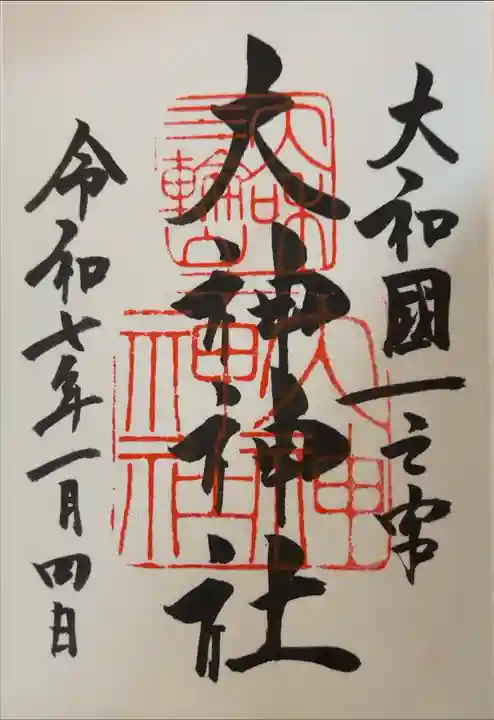 大和國一之宮
大神神社
令和七年一月四日
三輪山
大神神社